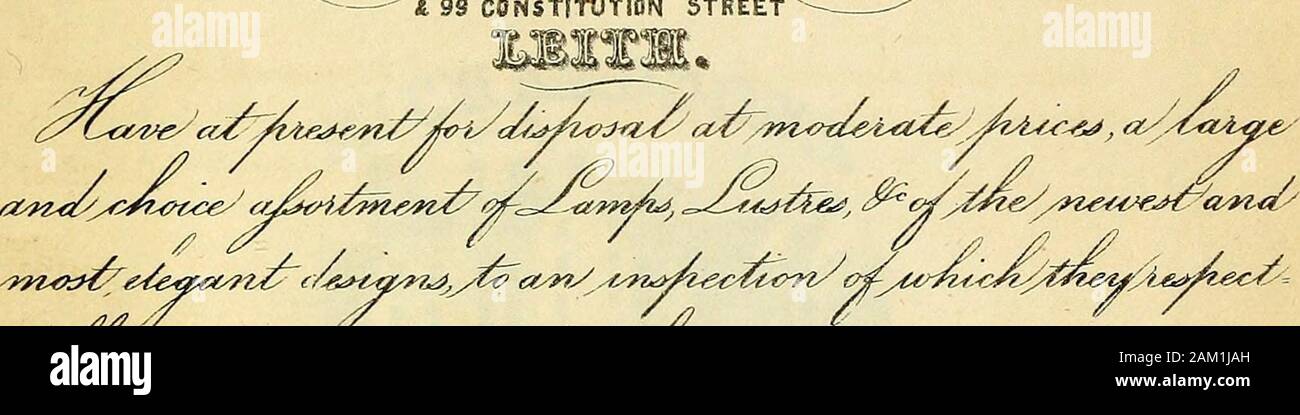 & 99 CONSTITUTION STREET
LEITH.
Have at present for disposal at moderate prices, a large
and choice aſsortment of Lamps, Lustres, &c of the newest and
most elegant designs, to an inspection of which they respect-
alamy
Image ID: 2AM1JAH
www.alamy.com